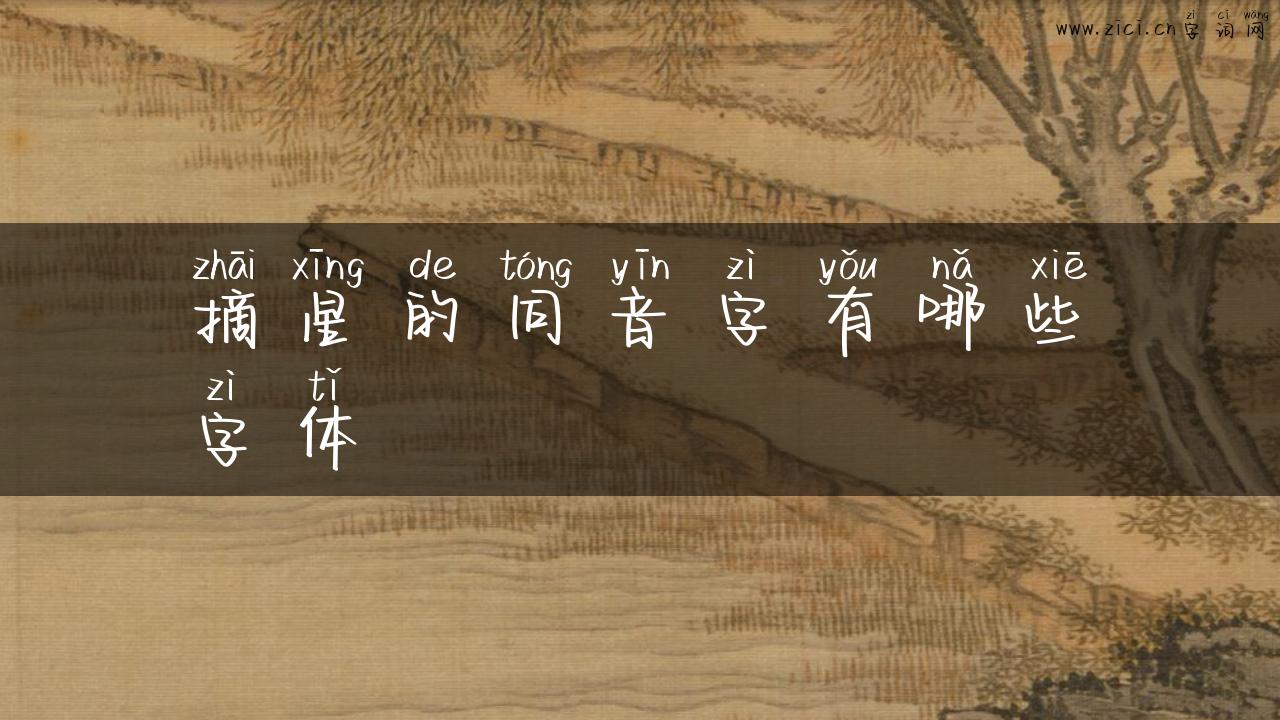 zì cī wǎng
www.zici.cn字词网
zhāi xīng de tóng yīn zì yǒu nǎ xiē
摘星的同音字有哪些
zì tǐ
字体